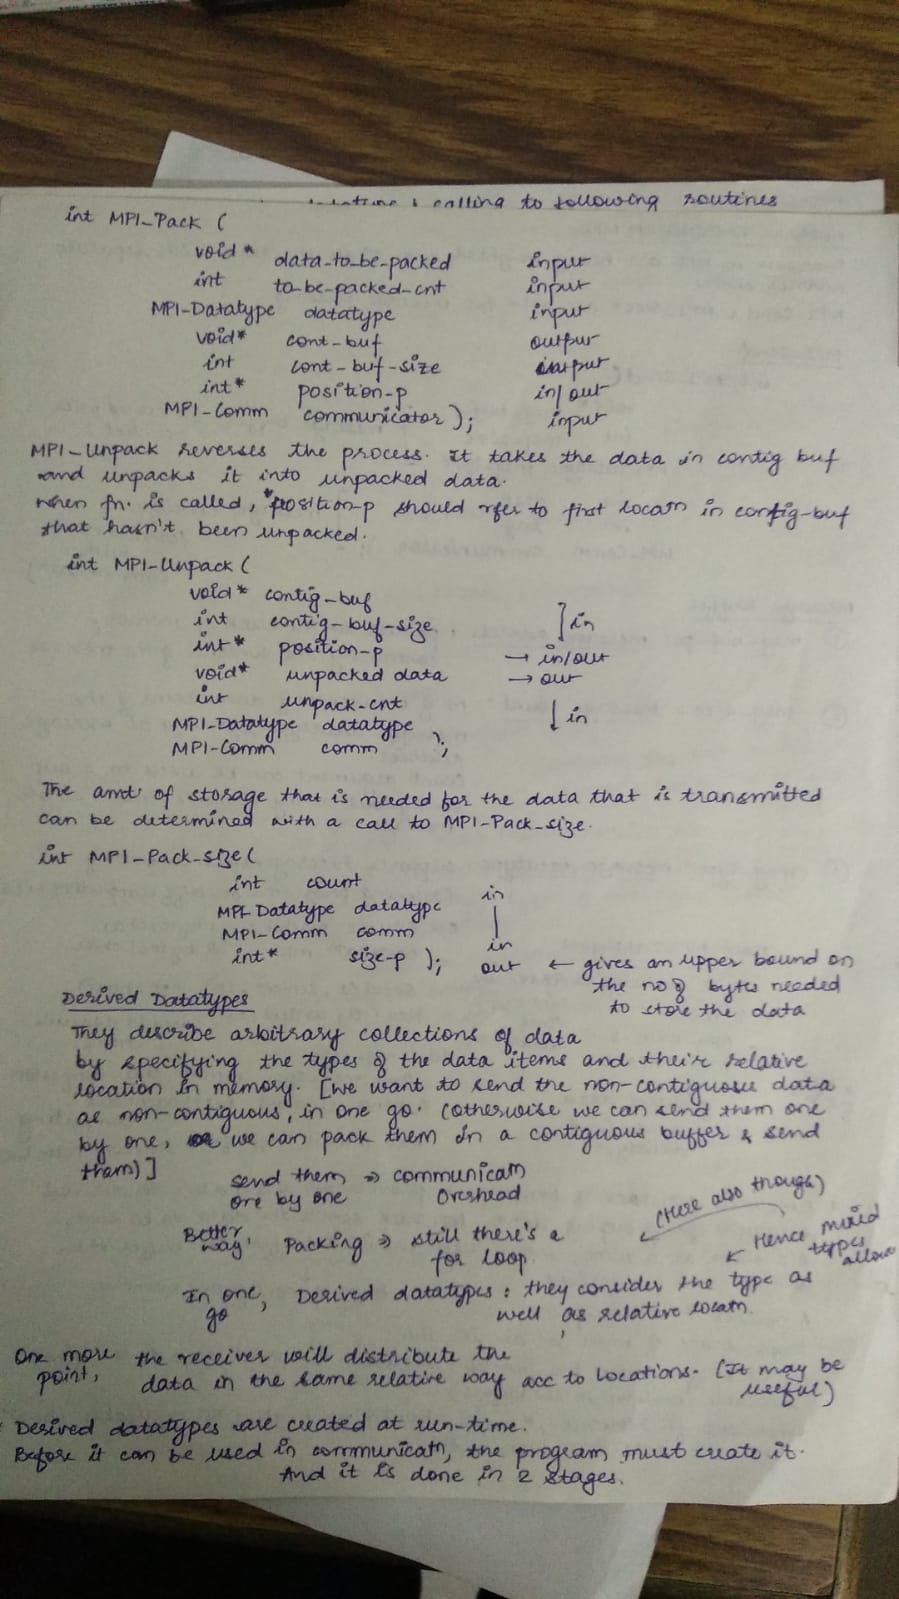 calling to following routines
int MPI-Pack (
void* data-to-be-packed input
int to-be-packed-cnt input
MPI-Datatype datatype input
void* cont-buf output
int cont-buf-size input
int* position-p in/out
MPI-Comm communicator); input
MPI-Unpack reverses the process. It takes the data in contig buf
and unpacks it into unpacked data.
when fn. is called, *position-p should refer to first locatn in config-buf
that hasn't been unpacked.
int MPI-Unpack (
void* contig-buf
int contig-buf-size ] in
int* position-p → in/out
void* unpacked data → out
int unpack-cnt
MPI-Datatype datatype ↓ in
MPI-Comm comm );
The amt. of storage that is needed for the data that is transmitted
can be determined with a call to MPI-Pack-size.
int MPI-Pack-size (
int count in
MPI-Datatype datatype |
MPI-Comm comm in
int* size-p ); out ← gives an upper bound on
the no of bytes needed
to store the data
Derived Datatypes
They describe arbitrary collections of data
by specifying the types of the data items and their relative
location in memory. [we want to send the non-contiguous data
as non-contiguous, in one go. (otherwise we can send them one
by one, or we can pack them in a contiguous buffer & send
them)]
send them ⇒ communicatn
one by one Overhead
(Here also though)
Better way, Packing ⇒ still there's a
for loop
Hence mixed
types
allow
In one go, Derived datatypes : they consider the type as
well as relative locatn.
One more point, the receiver will distribute the
data in the same relative way acc to locations. (It may be
useful)
Derived datatypes are created at run-time.
Before it can be used in communicatn, the program must create it.
And it is done in 2 stages.